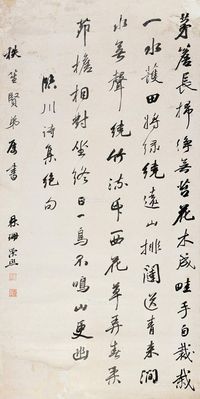 茅簷長掃淨無苔花木成畦手自栽
一水護田將綠繞遠山排闥送青來澗
水無聲繞竹流竹西花草弄春柔
茆檐相對坐終日一鳥不鳴山更幽
臨川詩集絕句
賢弟屬書